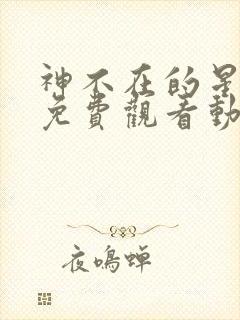 神不在的星
免費觀看動
夜鳴蟬